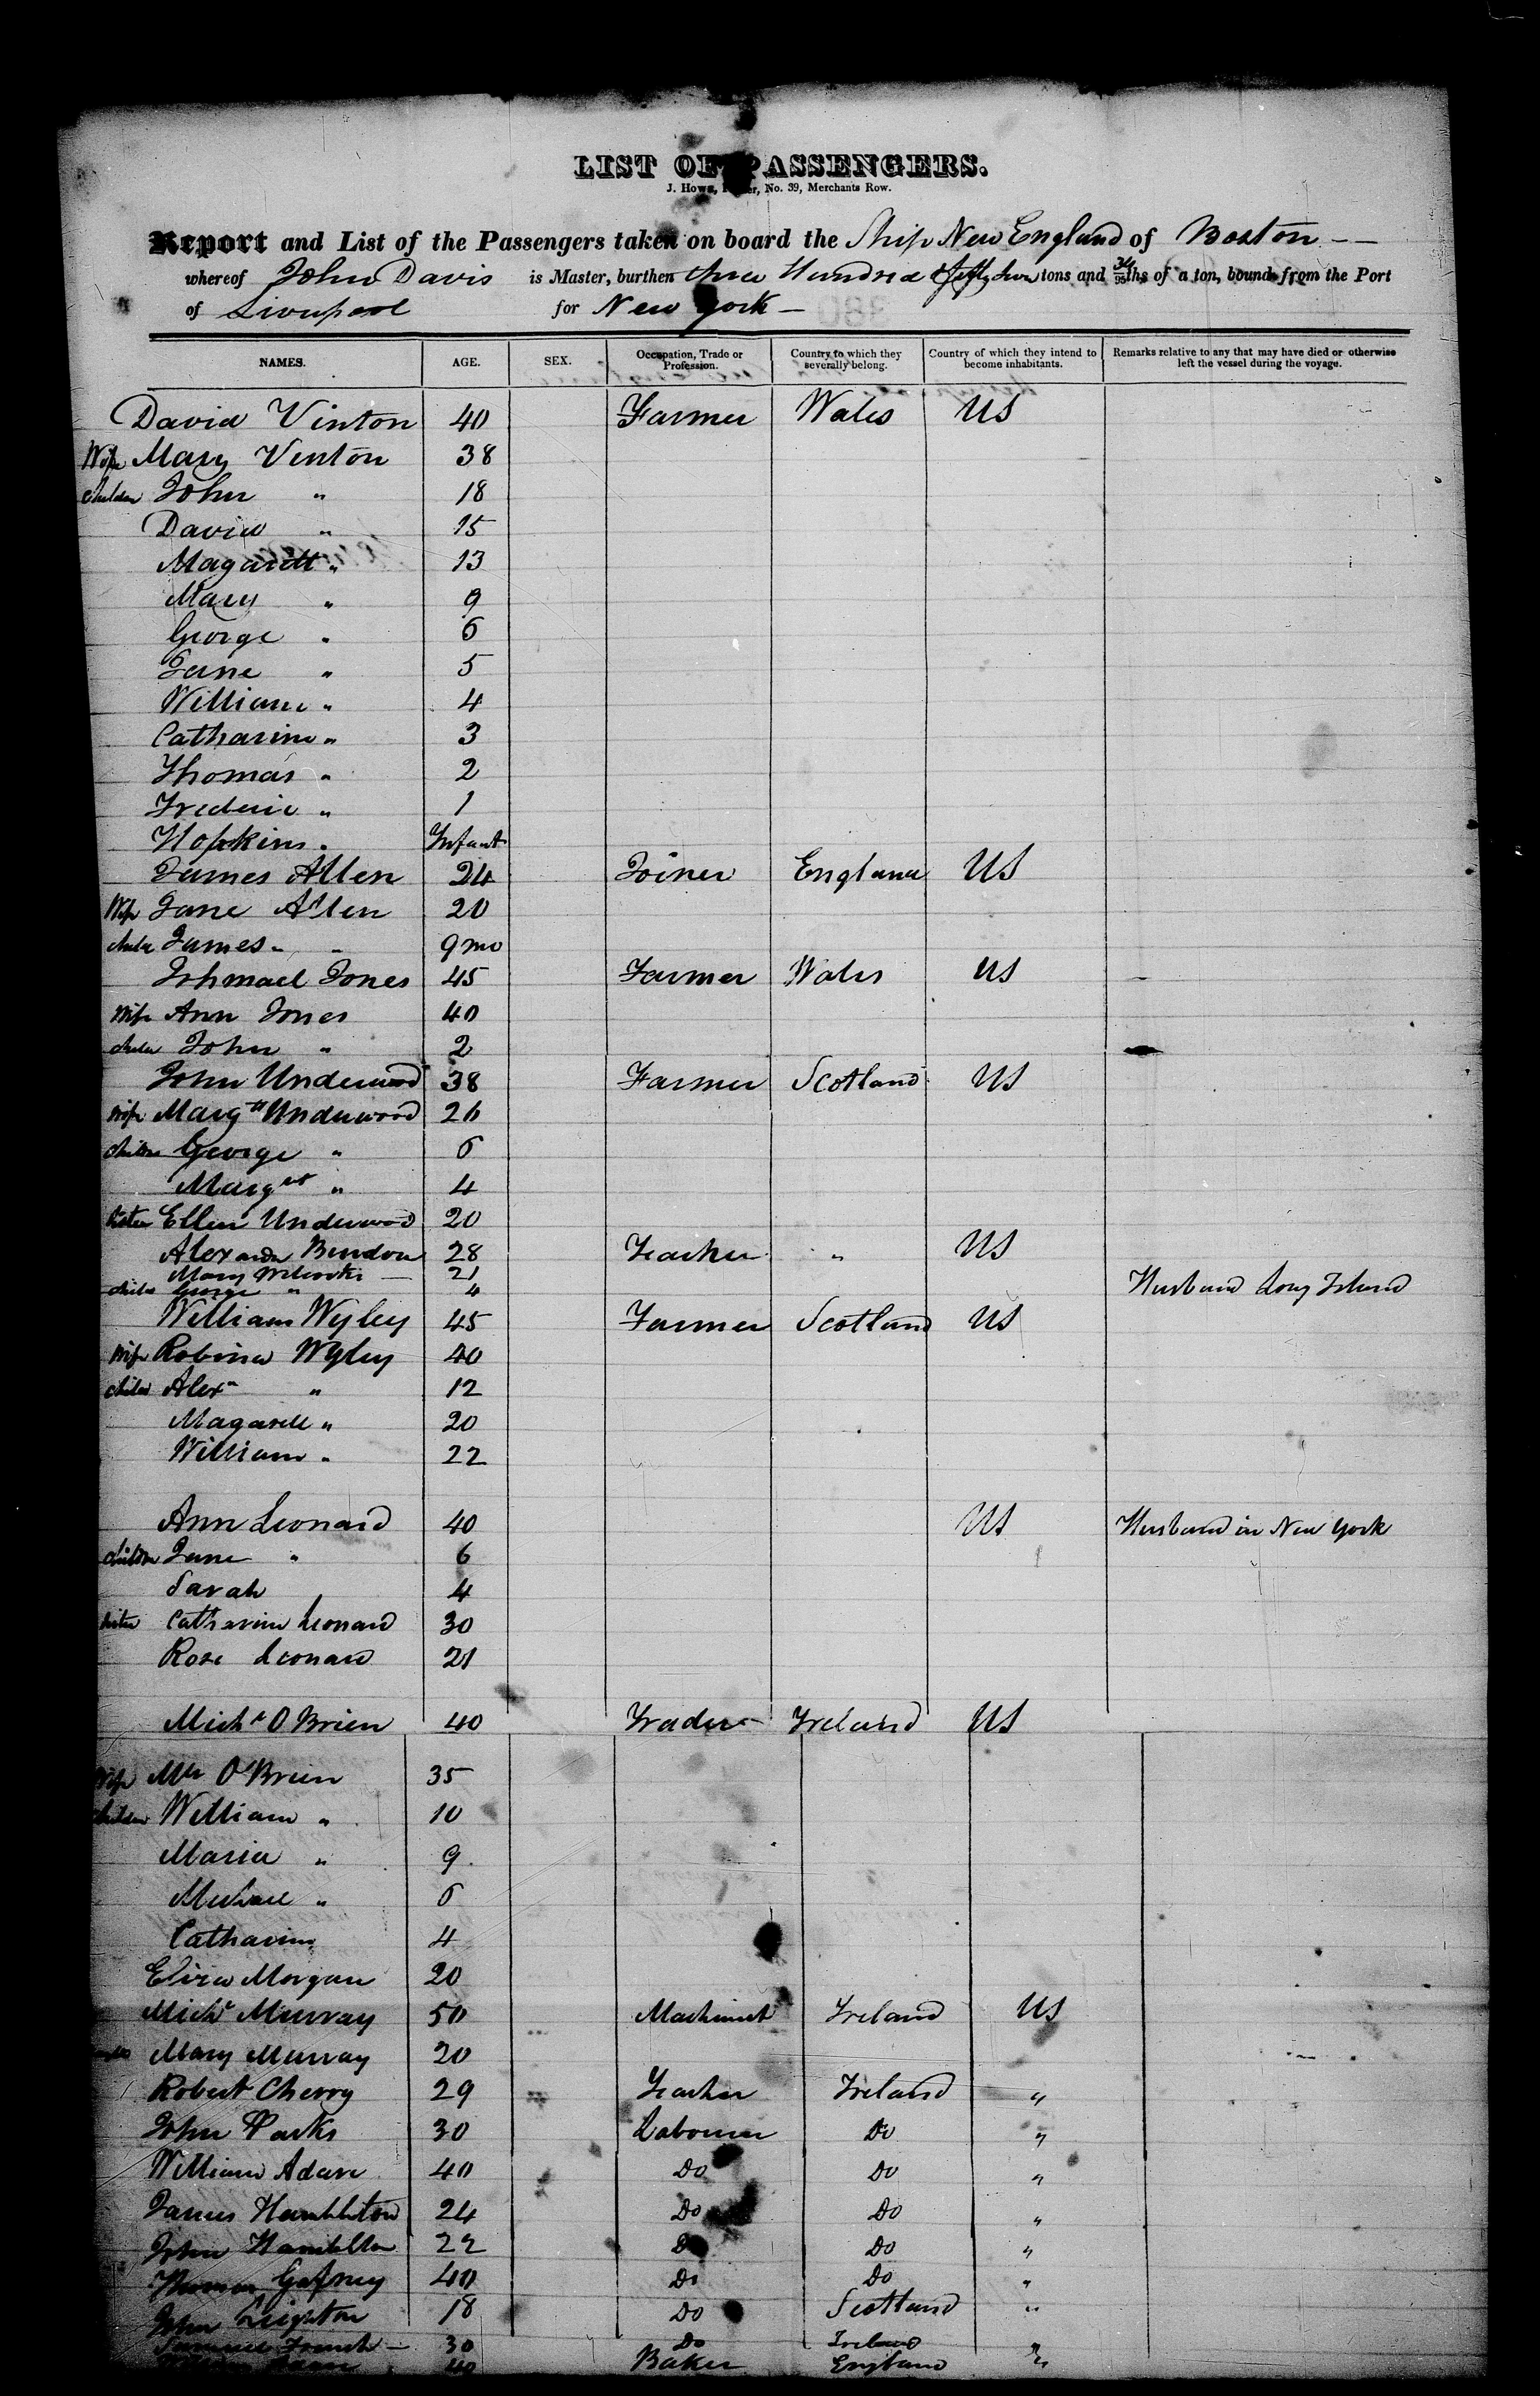 LIST OF PASSENGERS.
J. Howe, No. 39, Merchants Row.
Report and List of the Passengers taken on board the Ship New England of Boston
whereof John Davis is Master, burthen three Hundred & fifty two tons and 34/95ths of a ton, bound from the Port
of Liverpool for New York
NAMES. AGE. SEX. Occupation, Trade or Profession. Country to which they severally belong. Country of which they intend to become inhabitants. Remarks relative to any that may have died or otherwise left the vessel during the voyage.
David Vinton 40 Farmer Wales US
Wife Mary Venton 38
children John " 18
David " 15
Magarett " 13
Mary " 9
George " 6
Jane " 5
William " 4
Catharine " 3
Thomas " 2
Frederic " 1
Hopkins " Infant
James Allen 24 Joiner England US
Wife Jane Allen 20
child James " " 9 mo
Ishmael Jones 45 Farmer Wales US
Wife Ann Jones 40
child John " 2
John Underwood 38 Farmer Scotland US
Wife Margtt Underwood 26
children George " 6
Margret " 4
sister Ellen Underwood 20
Alexander 28 Teacher " US
Mary 21 Husband Long Island
child George " 4
William Wyley 45 Farmer Scotland US
Wife Robina Wyley 40
child Alexr " 12
Magarett " 20
William " 22
Ann Leonard 40 US Husband in New York
children Jane " 6
Sarah 4
sister Catherine Leonard 30
Rose Leonard 21
Michl O Brien 40 Trader Ireland US
Wife Mrs O'Brien 35
children William " 10
Maria " 9
Michael " 6
Catharine 4
Eliza Morgan 20
Michl Murray 50 Machinist Ireland US
Mary Murray 20
Robert Cherry 29 Teacher Ireland "
John Parks 30 Labourer Do "
William Adare 40 Do Do "
James Hambleton 24 Do Do "
John Hambleton 22 Do Do "
Thomas Gafney 40 Do Do "
John Leighton 18 Do Scotland "
Samuel French 30 Do Ireland "
40 Baker England "